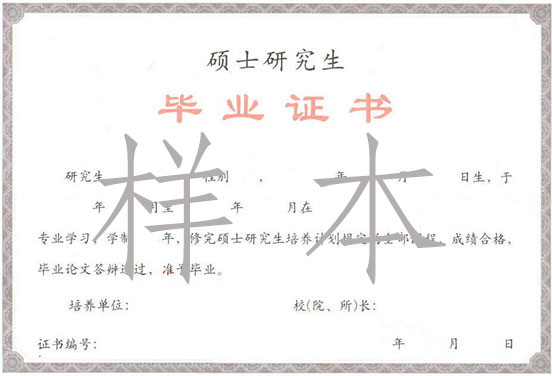 硕士研究生
毕业证书
样本
研究生 性别 , 年 月 日生, 于
年 月至 年 月在
专业学习, 学制 年, 修完硕士研究生培养计划规定的全部课程, 成绩合格,
毕业论文答辩通过, 准予毕业。
培养单位: 校(院、所)长:
证书编号: 年 月 日